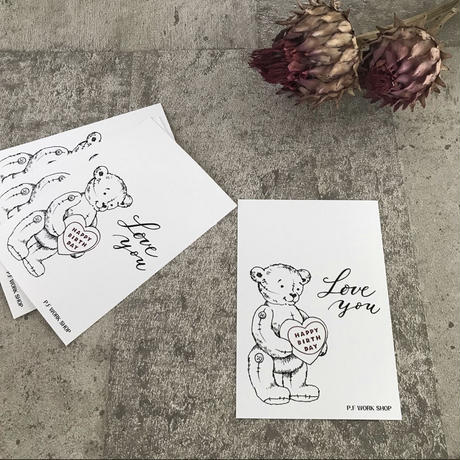 Love
you
HAPPY
BIRTH
DAY
P.F WORK SHOP
Love
you
HAPPY
BIRTH
DAY
P.F WORK SHOP